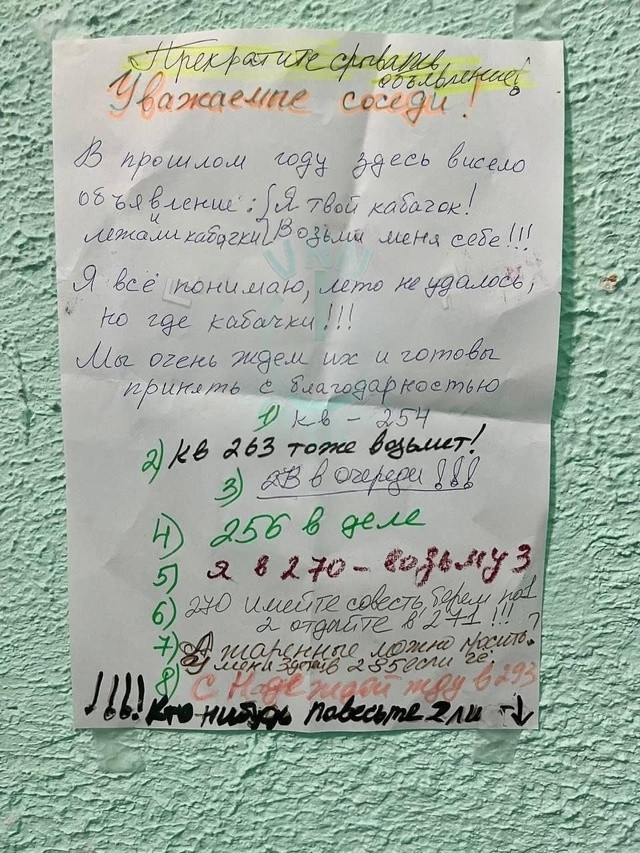 Прекратите срывать
объявление!
Уважаемые соседи!
В прошлом году здесь висело
объявление: { Я твой кабачок!
и
лежали кабачки { Возьми меня себе!!!
Я всё понимаю, лето не удалось,
но где кабачки!!!
Мы очень ждем их и готовы
принять с благодарностью
1) кв - 254
2) кв 263 тоже возьмет!
3) 2В в очереди!!!
4) 256 в деле
5) Я в 270 - возьму 3
6) 270 имейте совесть, берем по 1
2 отдайте в 271!!!
7) А жаренные можно просить?
У меня 3 зуба в 255 если че.
8) С Надеждой жду в 293
!!!! Кто нибудь повесьте 2 ли →↓